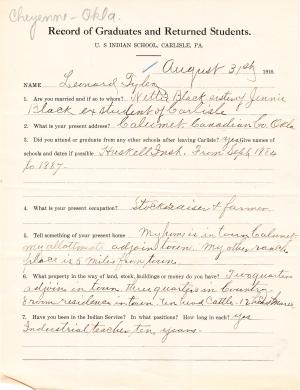 Cheyenne - Okla.
Record of Graduates and Returned Students.
U. S INDIAN SCHOOL, CARLISLE, PA.
August 31st 1910.
NAME Leonard Tyler
1. Are you married and if so to whom? Nettie Black sister of Jennie
Black ex student of Carlisle
2. What is your present address? Calumet Canadian Co. Okla
3. Did you attend or graduate from any other schools after leaving Carlisle? yes Give names of
schools and dates if possible Haskell Inst. From Sept 1884
to 1887.
4. What is your present occupation? Stockraiser & farmer
5. Tell something of your present home My home is in town Calumet
my allotment adjoin town. My other ranch
place is 5 miles from town
6. What property in the way of land, stock, buildings or money do you have? Two quarters
adjoin town, three quarters in Country
8 room residence in town. Ten head Cattle - 12 head Mares
7. Have you been in the Indian Service? In what positions? How long in each? yes
Industrial teacher, ten years.